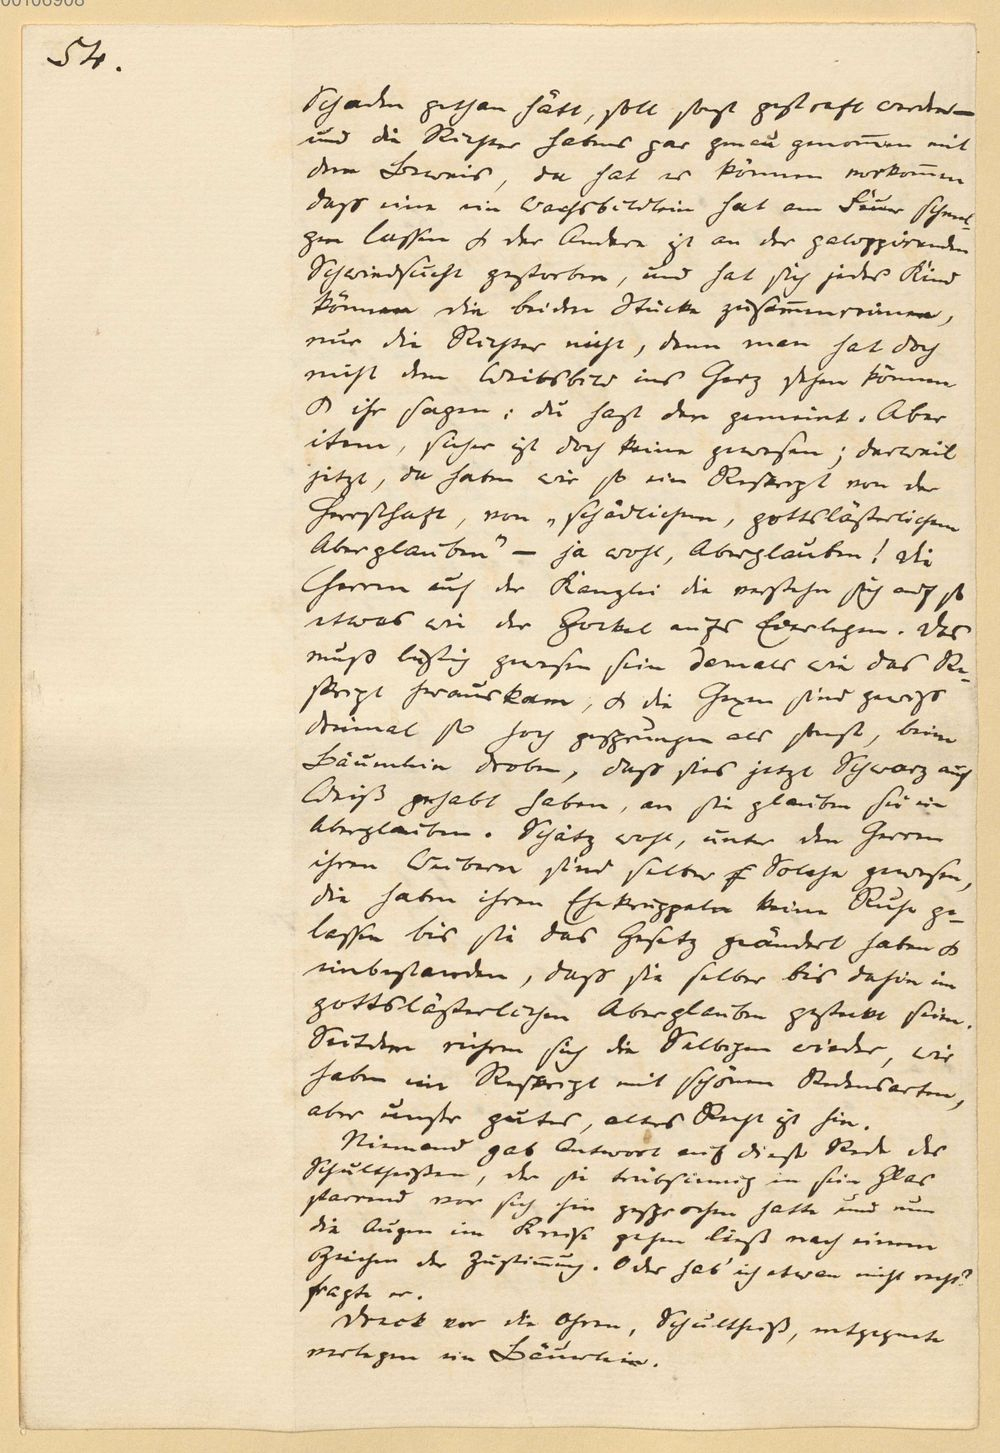 00106908
54.
Schaden gethan hätt, soll sonst gestraft werden –
und die Richter habens gar genau genom̄en mit
dem Beweis, da hat es können vorkom̄en
daß eine ein Wachsbildlein hat am Feuer schmel-
zen lassen & der Andere ist an der galoppirenden
Schwindsucht gestorben, und hat sich jedes Kind
können die beiden Stücke zusam̄enreimen,
nur die Richter nicht, denn man hat doch
nicht dem Weibsbild ins Herz sehen können
& ihr sagen: du hast den gemeint. Aber
item, sicher ist doch keine gewesen; derweil
jetzt, da haben wir so ein Reskript von der
Herrschaft, von „schädlichem, gottslästerlichem
Aberglauben" – ja wohl, Aberglauben! Die
Herren auf der Kanzlei die verstehn sich auf so
etwas wie der Gockel aufs Eierlegen. Das
muß lustig gewesen sein damals wie das Re-
skript herauskam, & die Hexen sind gewiß
dreimal so hoch gesprungen als sonst, beim
Bäumlein droben, daß sies jetzt Schwarz auf
Weiß gehabt haben, an sie glauben sei ein
Aberglauben. Schätz wohl, unter den Herren
ihren Weibern sind selber Solche gewesen,
die haben ihren Ehekrüppeln keine Ruhe ge-
lassen bis sie das Gesetz geändert haben &
einbestanden, daß sie selber bis dahin im
gottslästerlichen Aberglauben gesteckt seien.
Seitdem rühren sich die Selbigen wieder, wir
haben ein Reskript mit schönen Redensarten,
aber unser gutes, altes Recht ist hin.
Niemand gab Antwort auf diese Rede des
Schultheißen, der sie trübsinnig in sein Glas
starrend vor sich hin gesprochen hatte und nun
die Augen im Kreise gehen ließ nach einem
Zeichen der Zustim̄ung. Oder hab' ich etwan nicht recht?
fragte er.
Dreck vor die Ohren, Schultheiß, entgegnete
verlegen ein Bäuerlein.